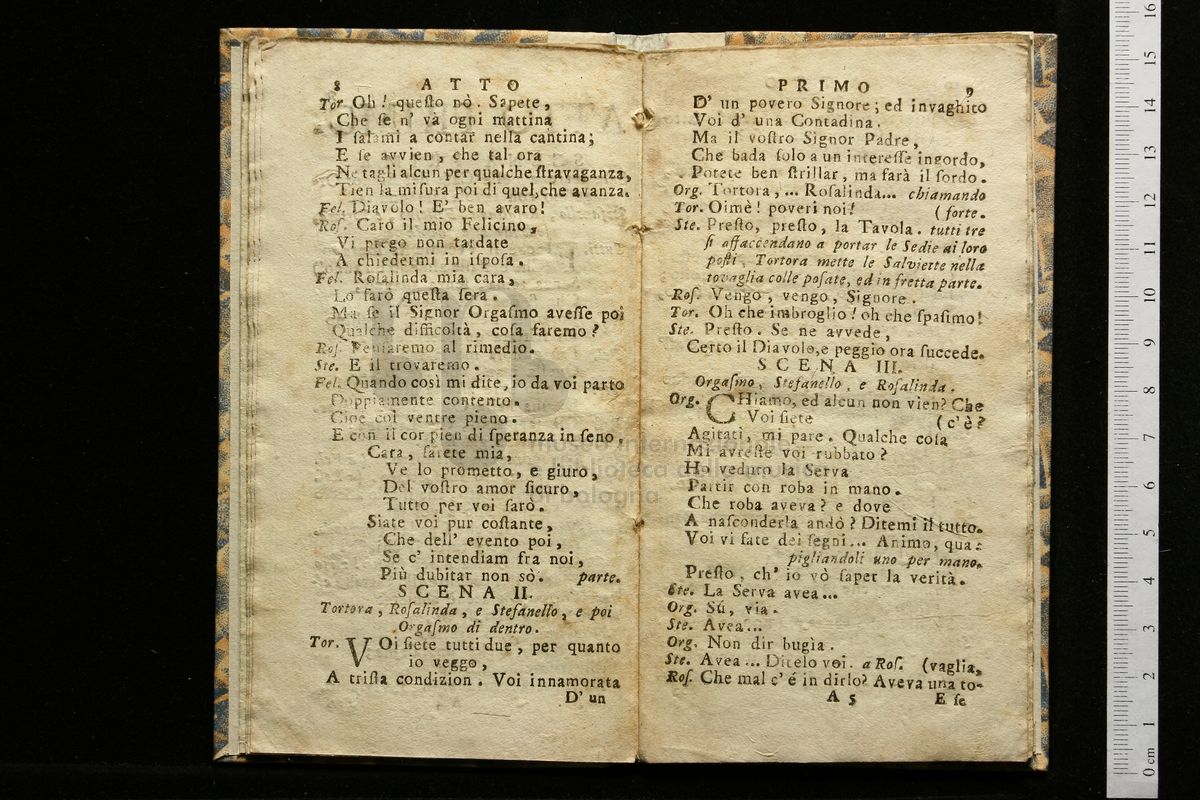 8 ATTO
Tor. Oh! questo nò. Sapete,
Che se n' và ogni mattina
I salami a contar nella cantina;
E se avvien, che tal ora
Ne tagli alcun per qualche stravaganza,
Tien la misura poi di quel, che avanza.
Fel. Diavolo! E' ben avaro!
Ros. Caro il mio Felicino,
Vi prego non tardate
A chiedermi in isposa.
Fel. Rosalinda mia cara,
Lo farò questa sera.
Ma se il Signor Orgasmo avesse poi
Qualche difficoltà, cosa faremo?
Ros. Pensaremo al rimedio.
Ste. E il trovaremo.
Fel. Quando così mi dite, io da voi parto
Doppiamente contento.
Cioè col ventre pieno.
E con il cor pien di speranza in seno,
Cara, sarete mia,
Ve lo prometto, e giuro,
Del vostro amor sicuro,
Tutto per voi sarò.
Siate voi pur costante,
Che dell' evento poi,
Se c' intendiam fra noi,
Più dubitar non sò. parte.
SCENA II.
Tortora, Rosalinda, e Stefanello, e poi
Orgasmo di dentro.
Tor. VOi siete tutti due, per quanto
io veggo,
A trista condizion. Voi innamorata
D' un
PRIMO 9
D' un povero Signore; ed invaghito
Voi d' una Contadina.
Ma il vostro Signor Padre,
Che bada solo a un interesse ingordo,
Potete ben strillar, ma farà il sordo.
Org. Tortora, ... Rosalinda... chiamando
Tor. Oimè! poveri noi! (forte.
Ste. Presto, presto, la Tavola. tutti tre
si affaccendano a portar le Sedie ai loro
posti, Tortora mette le Salviette nella
tovaglia colle posate, ed in fretta parte.
Ros. Vengo, vengo, Signore.
Tor. Oh che imbroglio! oh che spasimo!
Ste. Presto. Se ne avvede,
Certo il Diavolo, e peggio ora succede.
SCENA III.
Orgasmo, Stefanello, e Rosalinda.
Org. CHiamo, ed alcun non vien? Che
Voi siete (c'è?
Agitati, mi pare. Qualche cosa
Mi avreste voi rubbato?
Ho veduto la Serva
Partir con roba in mano.
Che roba aveva? e dove
A nasconderla andò? Ditemi il tutto.
Voi vi fate dei segni... Animo, quà:
pigliandoli uno per mano.
Presto, ch' io vò saper la verità.
Ste. La Serva avea...
Org. Sù, via.
Ste. Avea...
Org. Non dir bugìa.
Ste. Avea... Ditelo voi. a Ros. (vaglia,
Ros. Che mal c' é in dirlo? Aveva una to-
A 5 E se
museo internazionale
biblioteca della musica
di bologna
0 cm 1 2 3 4 5 6 7 8 9 10 11 12 13 14 15 16